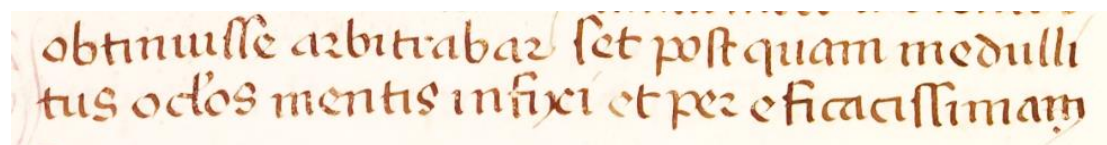 obtinuisse arbitrabar set post quam medulli
tus oclos mentis infixi et per eficacissimam